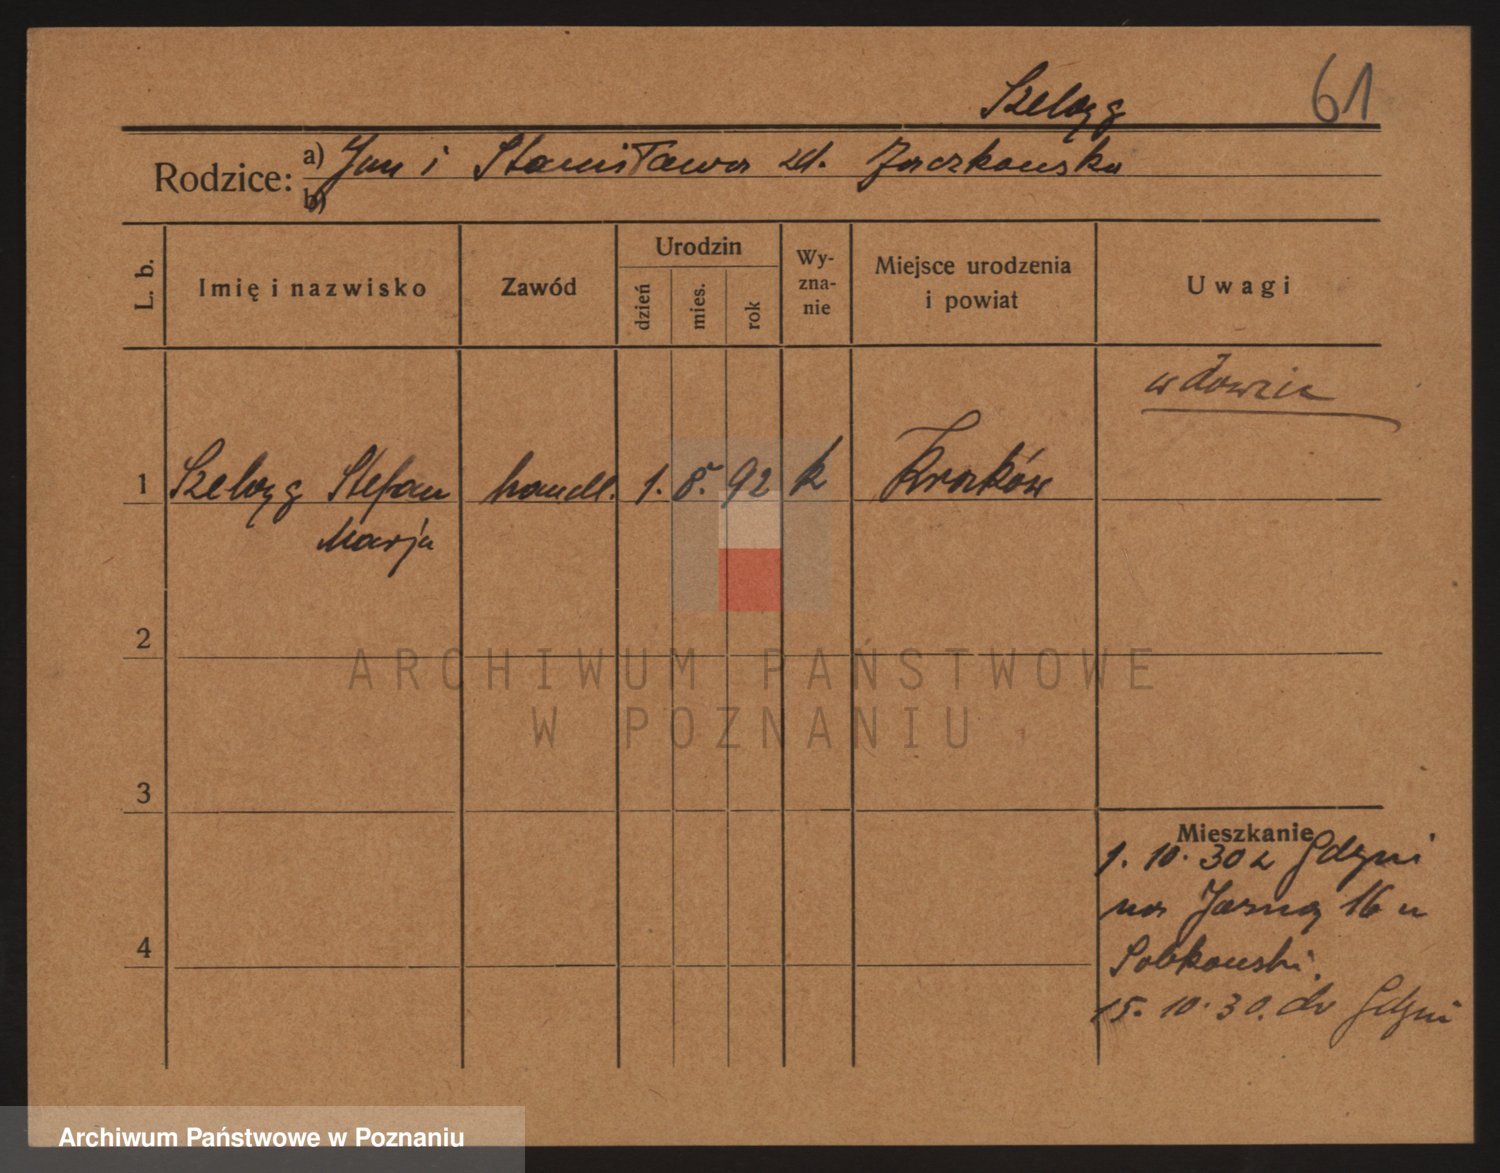 Szeloąg 61
Rodzice: a) Jan i Stanisława zd. Jaczkowska
b)
L. b. Imię i nazwisko Zawód Urodzin dzień mies. rok Wyznanie Miejsce urodzenia i powiat Uwagi
wdowiec
1 Szeloąg Stefan handl. 1. 8. 92 k Kraków
Marja
2
ARCHIWUM PAŃSTWOWE
W POZNANIU
3
Mieszkanie
1. 10. 30 z Gdyni
na Jasną 16 u
Sobkowski.
4
15. 10. 30. do Gdyni
Archiwum Państwowe w Poznaniu